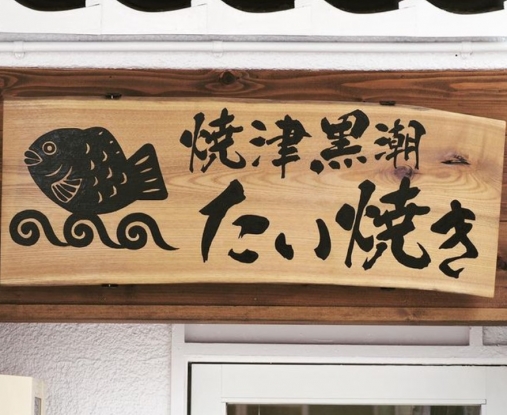 焼津黒潮
たい焼き